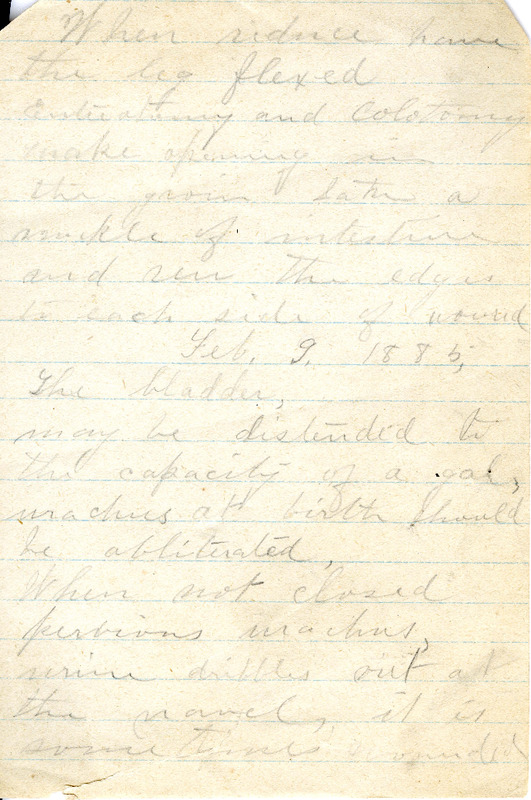 When reduce have
the leg flexed
Enterotomy and Colotomy
make opening in
the groin take a
nuckle of intestine
and sew the edges
to each side of wound
Feb. 9. 1885,
The bladder,
may be distended to
the capacity of a gal,
urachus at birth should
be obliterated,
When not closed
pervious urachus,
urine dribbles out at
the navel, it is
sometimes wounded